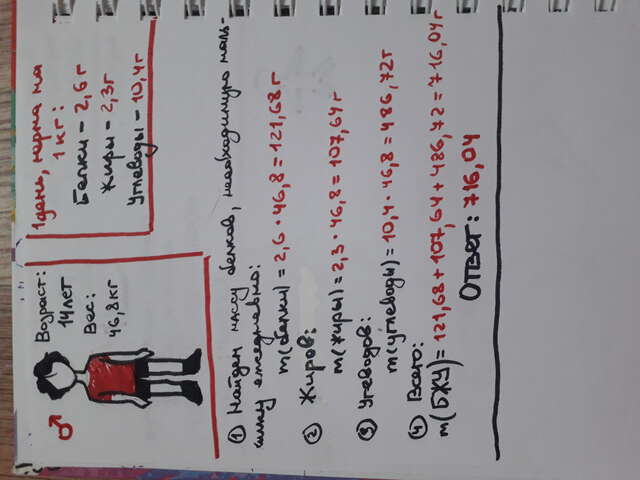 Возраст:
14 лет
Вес:
46,8кг
1 день, норма на
1 кг:
Белки - 2,6 г
Жиры - 2,3г
Углеводы - 10,4г
① Найдем массу белков, необходимую маль-
чику ежедневно:
m(белки) = 2,6 · 46,8 = 121,68 г
② Жиров:
m(жиры) = 2,3 · 46,8 = 107,64 г
③ Углеводов:
m(углеводы) = 10,4 · 46,8 = 486,72г
④ Всего:
m(БЖУ) = 121,68 + 107,64 + 486,72 = 716,04 г
Ответ: 716,04